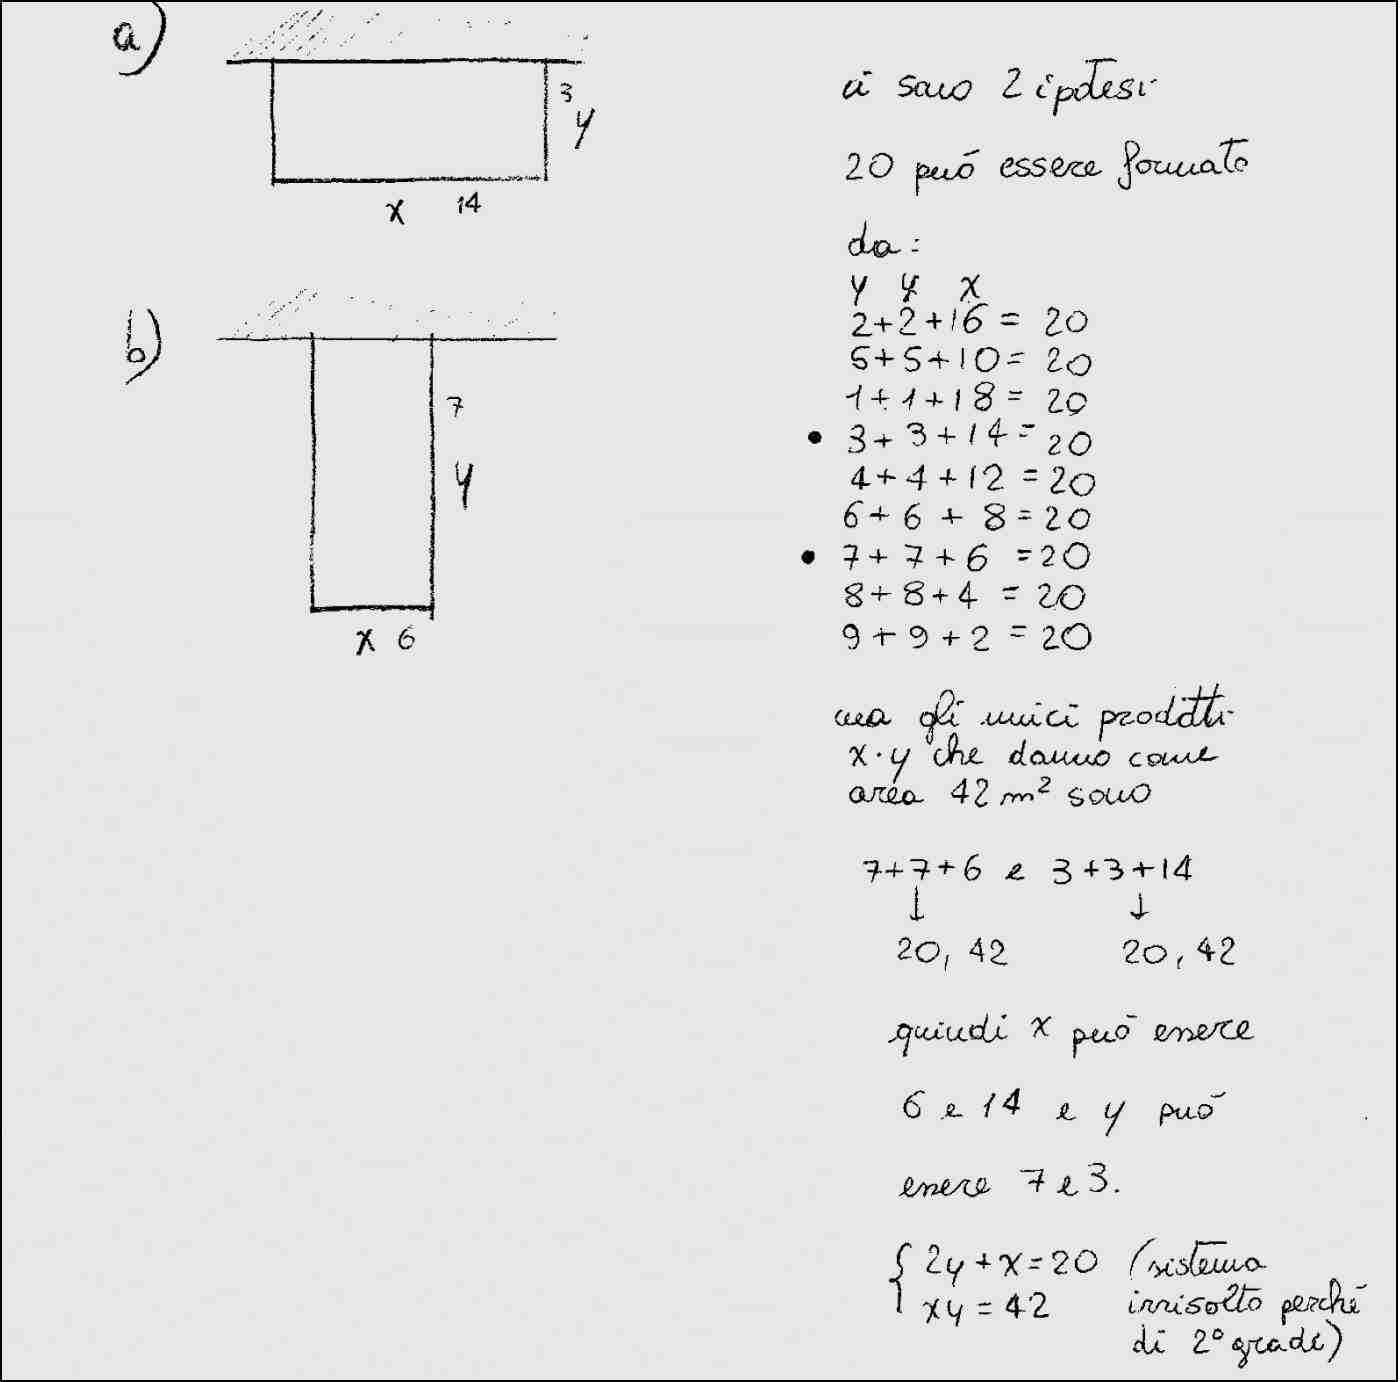 a)
3
y
x 14
b)
7
y
x 6
ci sono 2 ipotesi
20 può essere formato
da:
y y x
2+2+16 = 20
5+5+10= 20
1+1+18= 20
• 3+3+14= 20
4+4+12=20
6+6+8=20
• 7+7+6=20
8+8+4=20
9+9+2=20
ma gli unici prodotti
x·y che danno come
area 42 m² sono
7+7+6 e 3+3+14
↓ ↓
20, 42 20, 42
quindi x può essere
6 e 14 e y può
essere 7 e 3.
{ 2y+x=20 (sistema
xy=42 irrisolto perché
di 2° grado)